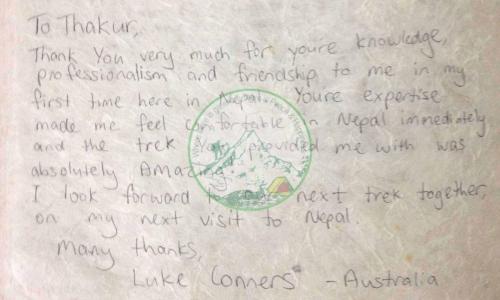 To Thakur,
Thank You very much for youre knowledge,
professionalism and friendship to me in my
first time here in Nepal. Youre expertise
made me feel comfortable in Nepal immediately
and the trek you provided me with was
absolutely Amazing
I look forward to our next trek together,
on my next visit to Nepal.
Many thanks,
Luke Conners - Australia